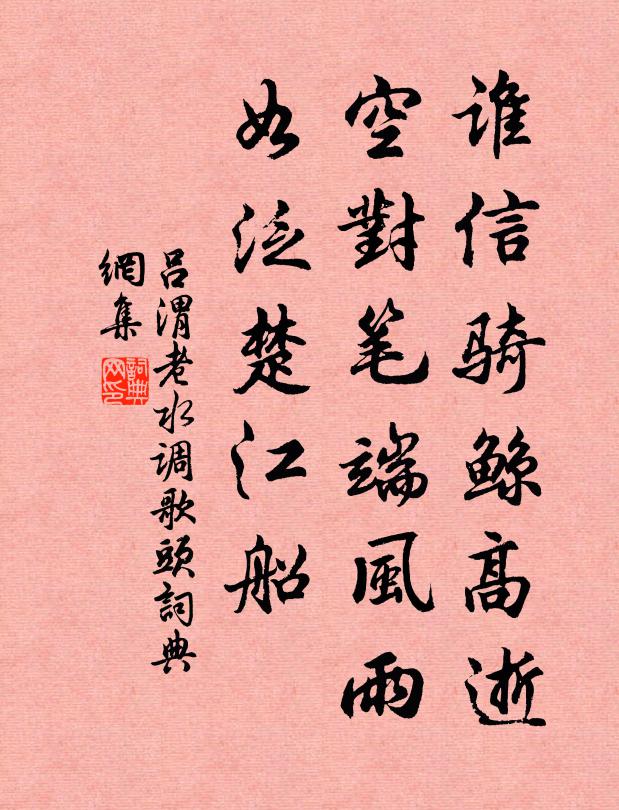 谁信骑鲸高逝
空對笔端風雨
如泛楚江船
吕渭老水调歌頭詞典
網集
詞典
网印